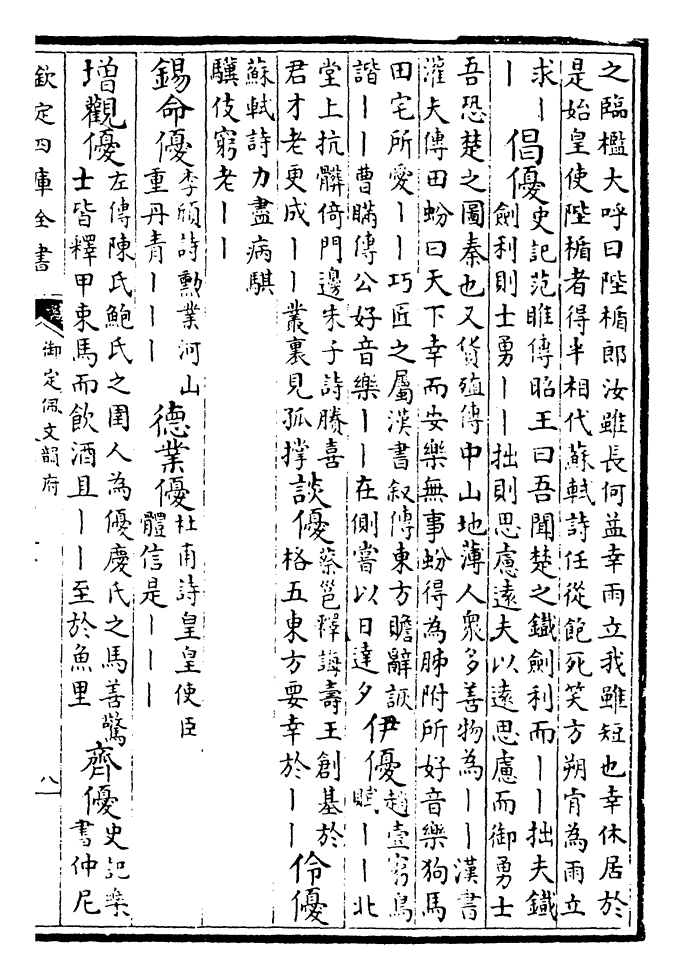 之臨檻大呼曰陛楯郎汝雖長何益幸雨立我雖短也幸休居於
是始皇使陛楯者得半相代蘇軾詩任從飽死笑方朔肯為雨立
求丨
丨
倡優
史記范睢傳昭王曰吾聞楚之鐵劍利而丨丨拙夫鐵
劍利則士勇丨丨拙則思慮遠夫以遠思慮而御勇士
吾恐楚之圖秦也又貨殖傳中山地薄人衆多善物為丨丨漢書
灌夫傳田蚡曰天下幸而安樂無事蚡得為肺附所好音樂狗馬
田宅所愛丨丨巧匠之屬漢書叙傳東方贍辭詼
諧丨丨曹瞞傳公好音樂丨丨在側嘗以日達夕
伊優
趙壹窮鳥
賦丨丨北
堂上抗髒倚門邊朱子詩賸喜
君才老更成丨丨叢裏見孤撑
談優
蔡邕釋誨壽王創基於
格五東方要幸於丨丨
伶優
蘇軾詩力盡病騏
驥伎窮老丨丨
錫命優
李頎詩勲業河山
重丹青丨丨丨
德業優
杜甫詩皇皇使臣
體信是丨丨丨
增觀優
左傳陳氏鮑氏之圉人為優慶氏之馬善驚
士皆釋甲束馬而飲酒且丨丨至於魚里
齊優
史記樂
書仲尼
欽定四庫全書
御定佩文韻府
八